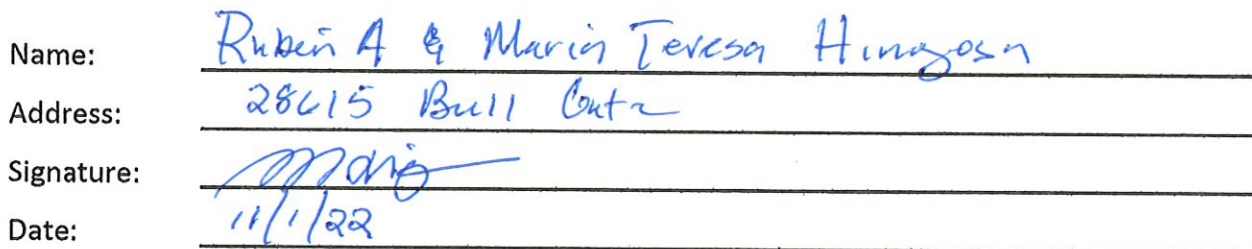 Name: Ruben A & Maria Teresa Hinojosa
Address: 28615 Bull Gate
Signature: Maria
Date: 11/1/22